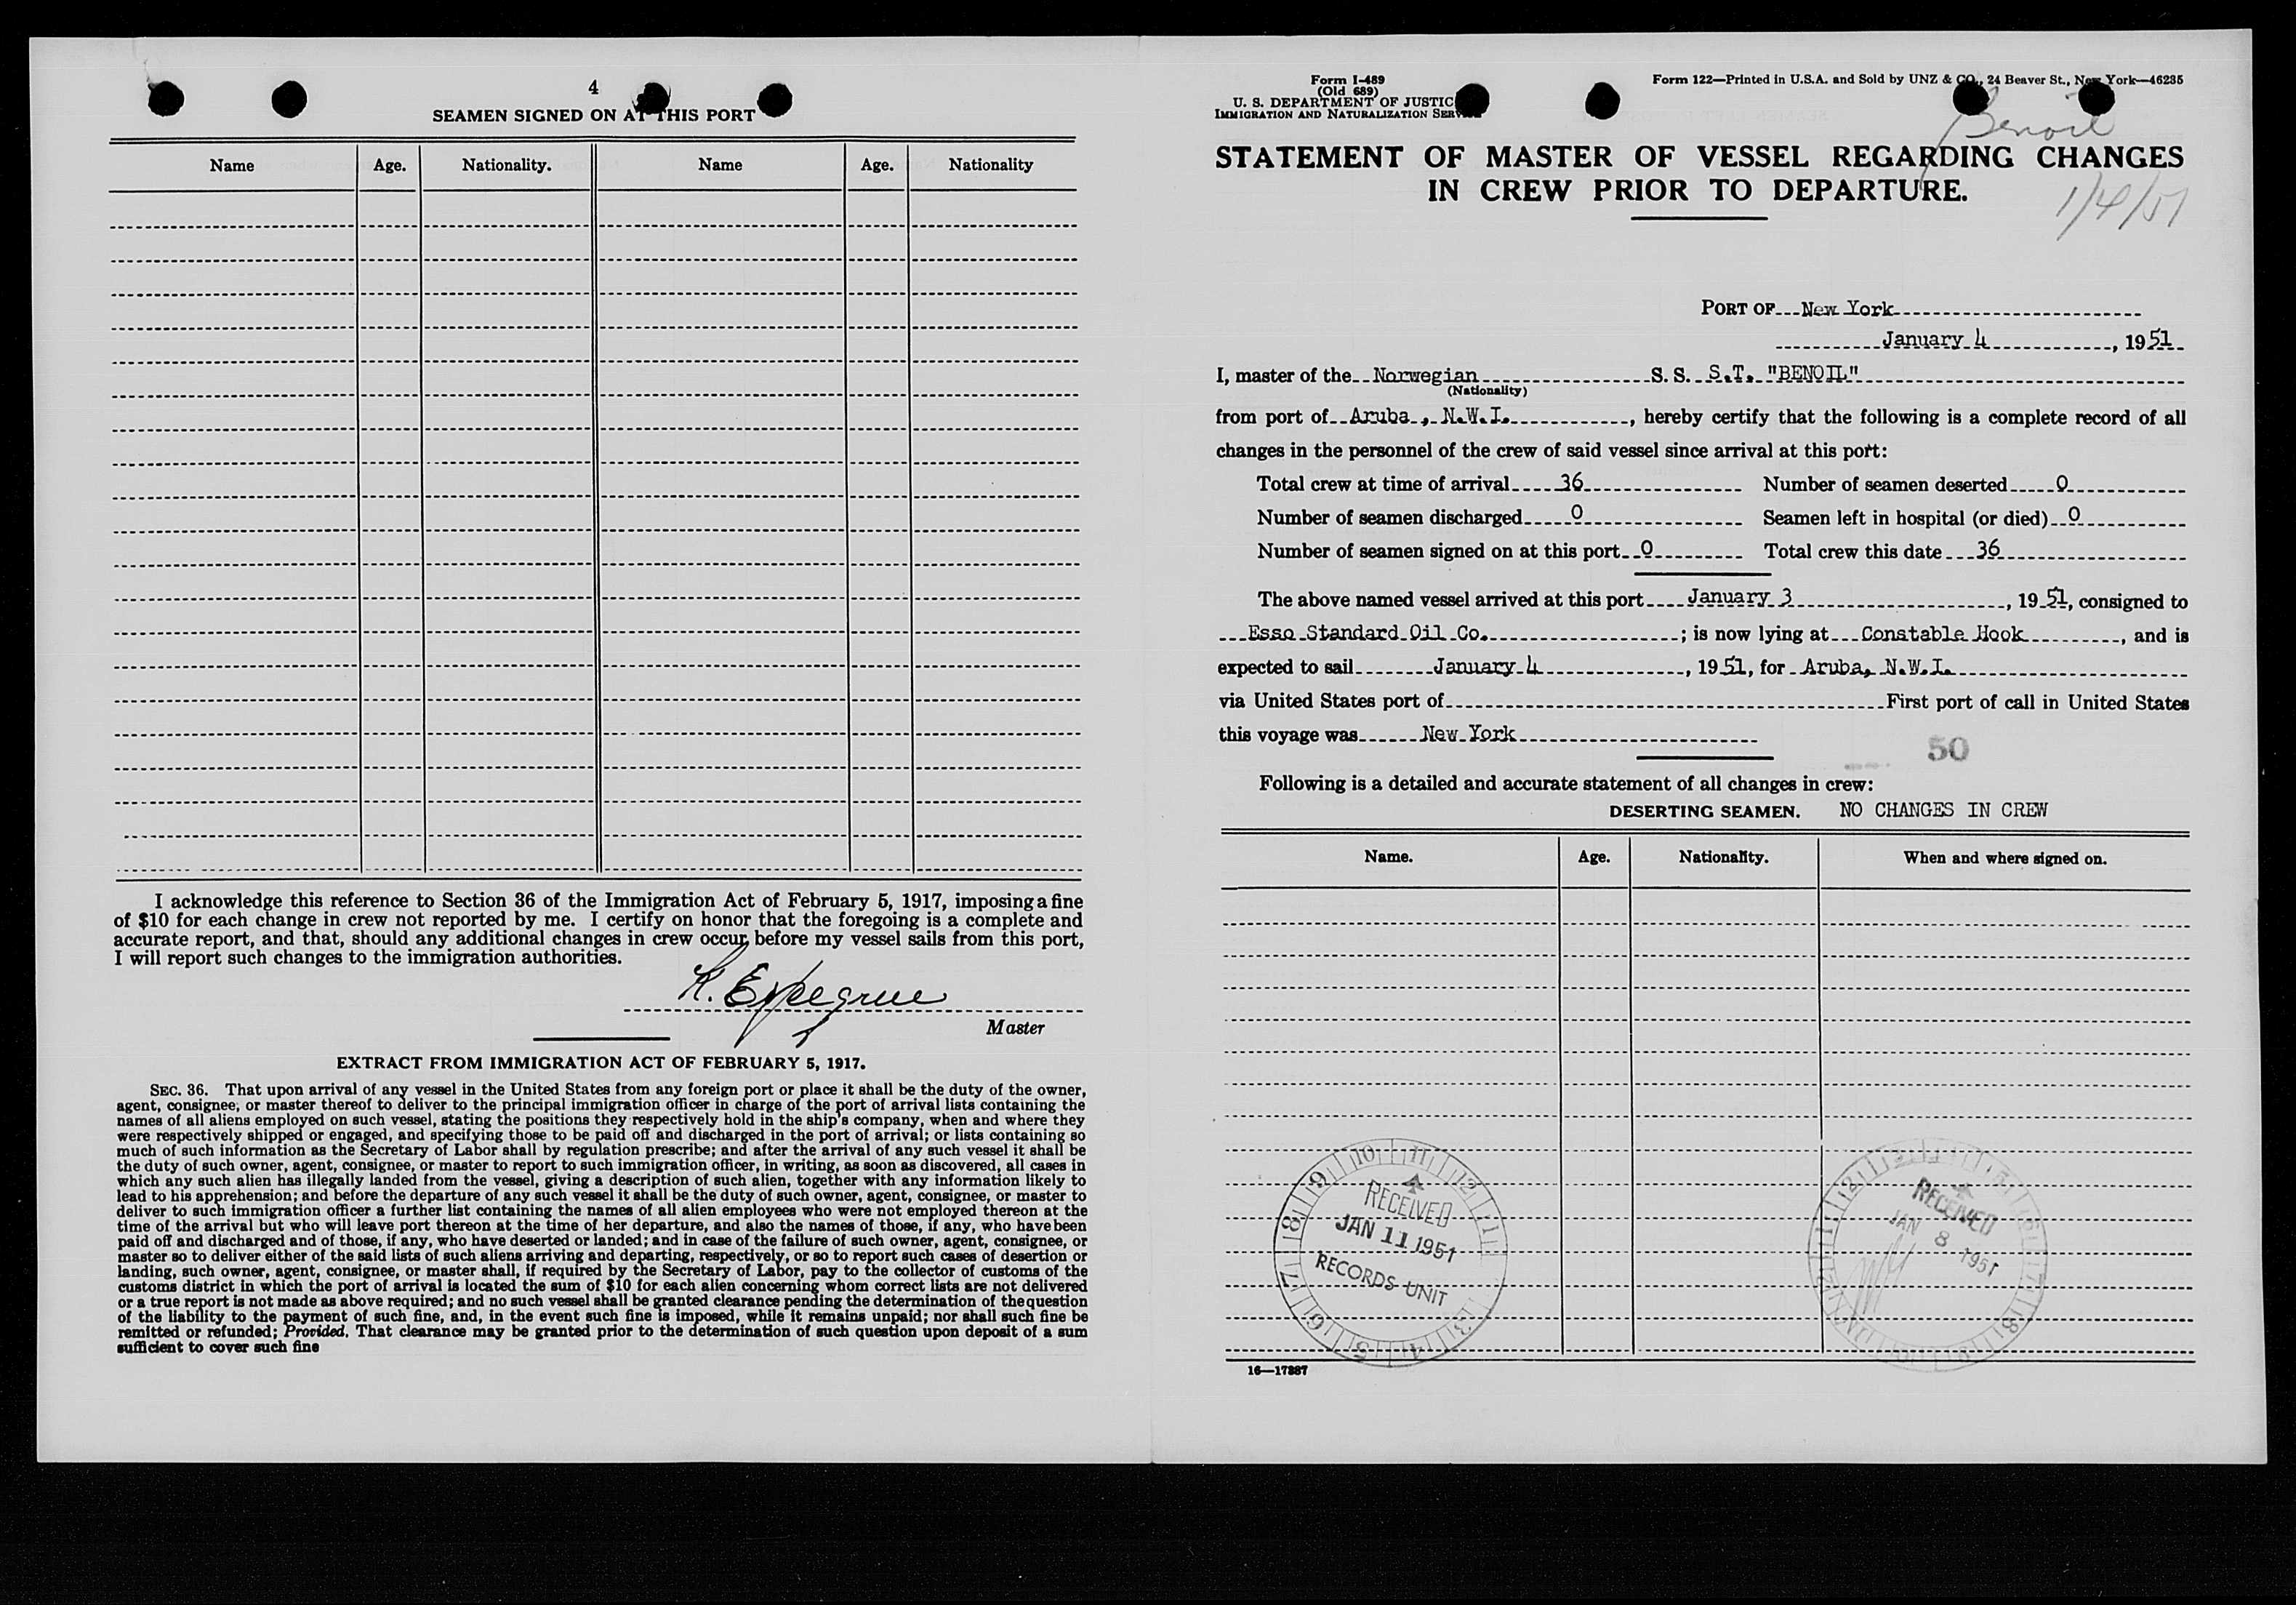 4
SEAMEN SIGNED ON AT THIS PORT
Name Age. Nationality. Name Age. Nationality
I acknowledge this reference to Section 36 of the Immigration Act of February 5, 1917, imposing a fine
of $10 for each change in crew not reported by me. I certify on honor that the foregoing is a complete and
accurate report, and that, should any additional changes in crew occur before my vessel sails from this port,
I will report such changes to the immigration authorities.
Master
EXTRACT FROM IMMIGRATION ACT OF FEBRUARY 5, 1917.
SEC. 36. That upon arrival of any vessel in the United States from any foreign port or place it shall be the duty of the owner,
agent, consignee, or master thereof to deliver to the principal immigration officer in charge of the port of arrival lists containing the
names of all aliens employed on such vessel, stating the positions they respectively hold in the ship's company, when and where they
were respectively shipped or engaged, and specifying those to be paid off and discharged in the port of arrival; or lists containing so
much of such information as the Secretary of Labor shall by regulation prescribe; and after the arrival of any such vessel it shall be
the duty of such owner, agent, consignee, or master to report to such immigration officer, in writing, as soon as discovered, all cases in
which any such alien has illegally landed from the vessel, giving a description of such alien, together with any information likely to
lead to his apprehension; and before the departure of any such vessel it shall be the duty of such owner, agent, consignee, or master to
deliver to such immigration officer a further list containing the names of all alien employees who were not employed thereon at the
time of the arrival but who will leave port thereon at the time of her departure, and also the names of those, if any, who have been
paid off and discharged and of those, if any, who have deserted or landed; and in case of the failure of such owner, agent, consignee, or
master so to deliver either of the said lists of such aliens arriving and departing, respectively, or so to report such cases of desertion or
landing, such owner, agent, consignee, or master shall, if required by the Secretary of Labor, pay to the collector of customs of the
customs district in which the port of arrival is located the sum of $10 for each alien concerning whom correct lists are not delivered
or a true report is not made as above required; and no such vessel shall be granted clearance pending the determination of the question
of the liability to the payment of such fine, and, in the event such fine is imposed, while it remains unpaid; nor shall such fine be
remitted or refunded; Provided, That clearance may be granted prior to the determination of such question upon deposit of a sum
sufficient to cover such fine
Form I-489
(Old 689)
U. S. DEPARTMENT OF JUSTIC
IMMIGRATION AND NATURALIZATION SERVICE
Form 122—Printed in U.S.A. and Sold by UNZ & CO., 24 Beaver St., New York—46235
Benoil
STATEMENT OF MASTER OF VESSEL REGARDING CHANGES
IN CREW PRIOR TO DEPARTURE.
1/4/51
PORT OF New York
January 4, 1951
I, master of the Norwegian S. S. S.T. "BENOIL"
(Nationality)
from port of Aruba, N.W.I., hereby certify that the following is a complete record of all
changes in the personnel of the crew of said vessel since arrival at this port:
Total crew at time of arrival 36 Number of seamen deserted 0
Number of seamen discharged 0 Seamen left in hospital (or died) 0
Number of seamen signed on at this port 0 Total crew this date 36
The above named vessel arrived at this port January 3, 1951, consigned to
Esso Standard Oil Co. ; is now lying at Constable Hook, and is
expected to sail January 4, 1951, for Aruba, N.W.I.
via United States port of First port of call in United States
this voyage was New York
50
Following is a detailed and accurate statement of all changes in crew:
DESERTING SEAMEN. NO CHANGES IN CREW
Name. Age. Nationality. When and where signed on.
RECEIVED
JAN 11 1951
RECORDS UNIT
RECEIVED
JAN 8 1951
16—17887